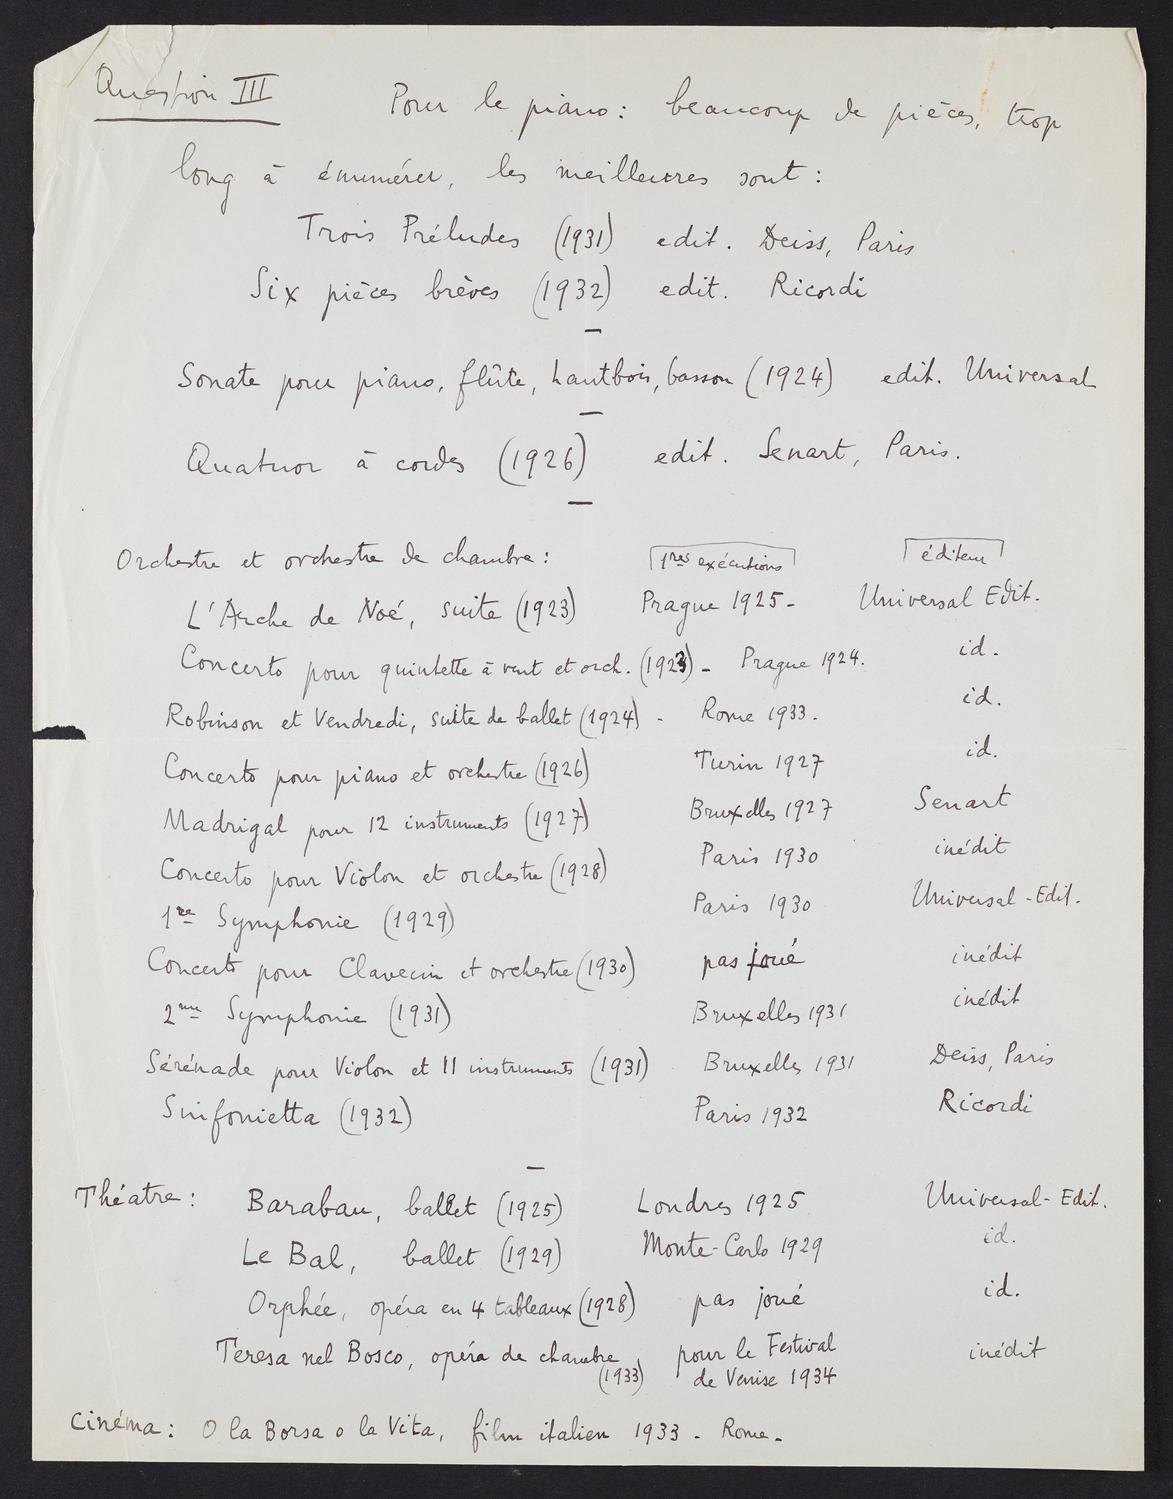 Question III
Pour le piano: beaucoup de pièces, trop
long à énumérer, les meilleures sont:
Trois Préludes (1931) edit. Deiss, Paris
Six pièces brèves (1932) edit. Ricordi
Sonate pour piano, flûte, hautbois, basson (1924) edit. Universal
Quatuor à cordes (1926) edit. Senart, Paris.
Orchestre et orchestre de chambre: 1res exécutions éditeur
L'Arche de Noé, suite (1923) Prague 1925- Universal Edit.
Concerto pour quintette à vent et orch. (1923) - Prague 1924. id.
Robinson et Vendredi, suite de ballet (1924) - Rome 1933. id.
Concerto pour piano et orchestre (1926) Turin 1927 id.
Madrigal pour 12 instruments (1927) Bruxelles 1927 Senart
Concerto pour Violon et orchestre (1928) Paris 1930 inédit
1re Symphonie (1929) Paris 1930 Universal-Edit.
Concerto pour Clavecin et orchestre (1930) pas joué inédit
2me Symphonie (1931) Bruxelles 1931 inédit
Sérénade pour Violon et 11 instruments (1931) Bruxelles 1931 Deiss, Paris
Sinfonietta (1932) Paris 1932 Ricordi
Théatre: Barabau, ballet (1925) Londres 1925 Universal-Edit.
Le Bal, ballet (1929) Monte-Carlo 1929 id.
Orphée, opéra en 4 tableaux (1928) pas joué id.
Teresa nel Bosco, opéra de chambre (1933) pour le Festival inédit
de Venise 1934
Cinéma: O la Borsa o la Vita, film italien 1933 - Rome-